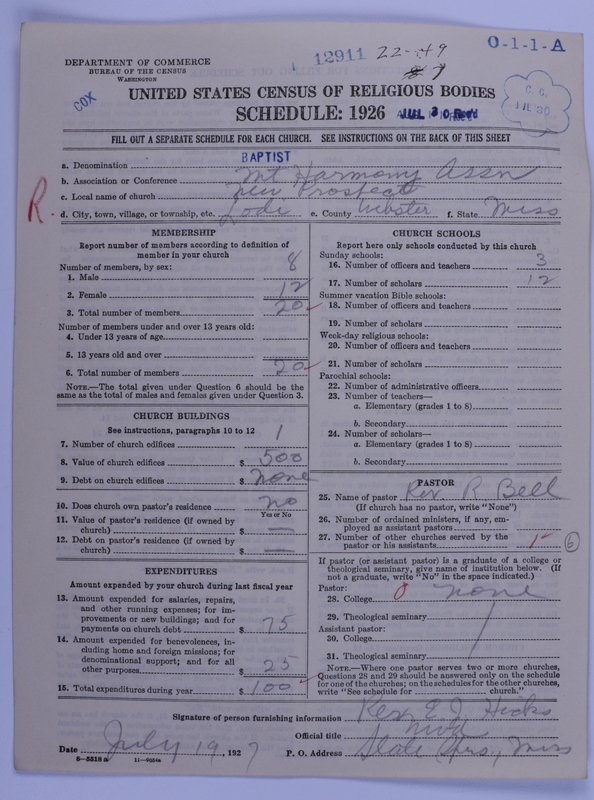 12911 22-49
O-1-1-A
DEPARTMENT OF COMMERCE
BUREAU OF THE CENSUS
WASHINGTON
COX
UNITED STATES CENSUS OF RELIGIOUS BODIES
SCHEDULE: 1926 JUL 30 Rec'd
FILL OUT A SEPARATE SCHEDULE FOR EACH CHURCH. SEE INSTRUCTIONS ON THE BACK OF THIS SHEET
a. Denomination BAPTIST
b. Association or Conference Mt Harmony Assn
c. Local name of church New Prospect
R. d. City, town, village, or township, etc. Lodi e. County Webster f. State Miss
MEMBERSHIP
Report number of members according to definition of
member in your church
Number of members, by sex:
1. Male 8
2. Female 12
3. Total number of members 20
Number of members under and over 13 years old:
4. Under 13 years of age
5. 13 years old and over
6. Total number of members 20
NOTE.—The total given under Question 6 should be the
same as the total of males and females given under Question 3.
CHURCH BUILDINGS
See instructions, paragraphs 10 to 12
7. Number of church edifices 1
8. Value of church edifices $ 500
9. Debt on church edifices $ none
10. Does church own pastor's residence no
Yes or No
11. Value of pastor's residence (if owned by
church) $ —
12. Debt on pastor's residence (if owned by
church) $ —
EXPENDITURES
Amount expended by your church during last fiscal year
13. Amount expended for salaries, repairs,
and other running expenses; for im-
provements or new buildings; and for
payments on church debt $ 75
14. Amount expended for benevolences, in-
cluding home and foreign missions; for
denominational support; and for all
other purposes $ 25
15. Total expenditures during year $ 100
CHURCH SCHOOLS
Report here only schools conducted by this church
Sunday schools:
16. Number of officers and teachers 3
17. Number of scholars 12
Summer vacation Bible schools:
18. Number of officers and teachers
19. Number of scholars
Week-day religious schools:
20. Number of officers and teachers
21. Number of scholars
Parochial schools:
22. Number of administrative officers
23. Number of teachers—
a. Elementary (grades 1 to 8)
b. Secondary
24. Number of scholars—
a. Elementary (grades 1 to 8)
b. Secondary
PASTOR
25. Name of pastor Rev. R Bell
(If church has no pastor, write "None")
26. Number of ordained ministers, if any, em-
ployed as assistant pastors
27. Number of other churches served by the
pastor or his assistants 1 6
If pastor (or assistant pastor) is a graduate of a college or
theological seminary, give name of institution below. (If
not a graduate, write "No" in the space indicated.)
Pastor:
28. College 0 none
29. Theological seminary
Assistant pastor:
30. College
31. Theological seminary
NOTE.—Where one pastor serves two or more churches,
Questions 28 and 29 should be answered only on the schedule
for one of the churches; on the schedules for the other churches,
write "See schedule for church."
Signature of person furnishing information Rev. E. J. Hicks
Official title Mod
Date July 19, 1927 P. O. Address Slate Sprs., Miss
8—5318a 11—9064a